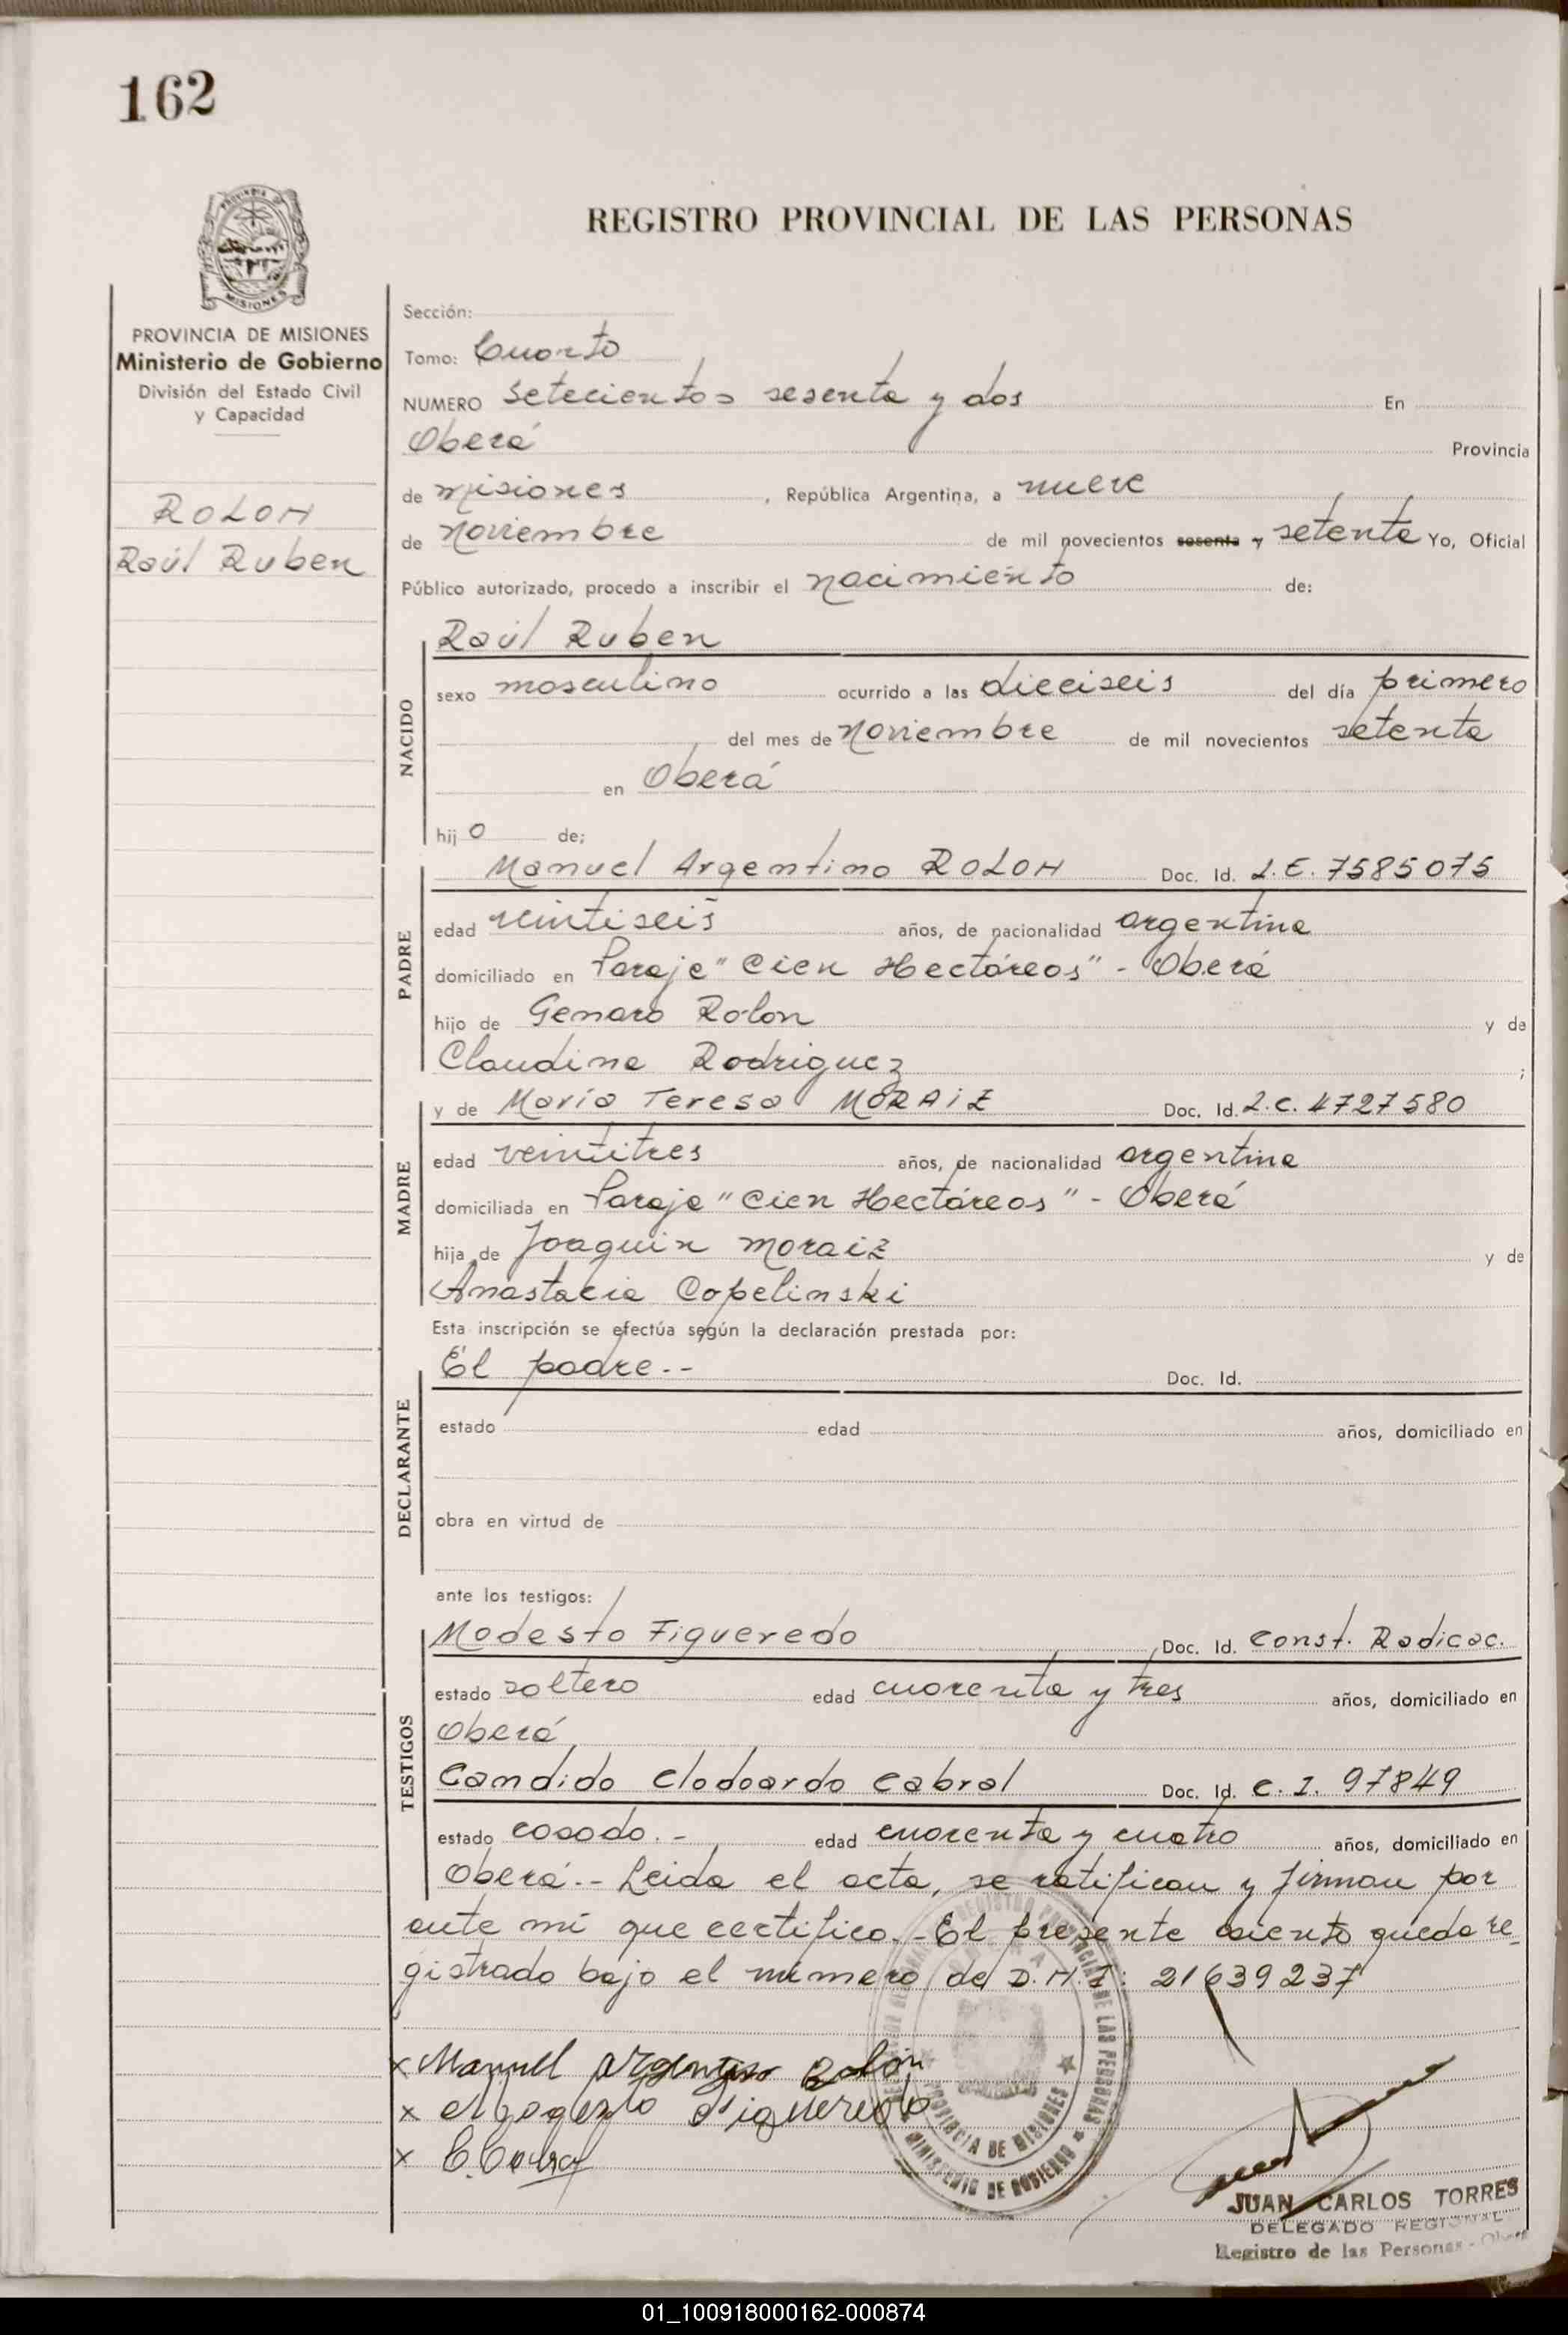 162
REGISTRO PROVINCIAL DE LAS PERSONAS
MISIONES
PROVINCIA DE MISIONES
Ministerio de Gobierno
División del Estado Civil
y Capacidad
ROLON
Raúl Ruben
Sección:
Tomo: Cuarto
NUMERO Setecientos sesenta y dos En
Oberá Provincia
de Misiones, República Argentina, a nueve
de Noviembre de mil novecientos sesenta y setenta Yo, Oficial
Público autorizado, procedo a inscribir el nacimiento de:
NACIDO
Raúl Ruben
sexo masculino ocurrido a las dieciseis del día primero
del mes de Noviembre de mil novecientos setenta
en Oberá
hijo de;
PADRE
Manuel Argentino ROLON Doc. Id. L.E. 7585075
edad veintiseis años, de nacionalidad argentina
domiciliado en Paraje "Cien Hectáreas" - Oberá
hijo de Genaro Rolon y de
Claudina Rodriguez ;
MADRE
y de María Teresa MORAIZ Doc. Id. L.C. 4727580
edad veintitres años, de nacionalidad argentina
domiciliada en Paraje "Cien Hectáreas" - Oberá
hija de Joaquin Moraiz y de
Anastacia Copelinski
Esta inscripción se efectúa según la declaración prestada por:
DECLARANTE
El padre.-- Doc. Id.
estado edad años, domiciliado en
obra en virtud de
ante los testigos:
TESTIGOS
Modesto Figueredo Doc. Id. Const. Radicac.
estado soltero edad cuarenta y tres años, domiciliado en
Oberá
Candido Clodoardo Cabral Doc. Id. C. I. 97849
estado casado.- edad cuarenta y cuatro años, domiciliado en
Oberá.-- Leida el acta, se ratifican y firman por
ante mí que certifico.- El presente asiento queda re-
gistrado bajo el número de D.N.I: 21639237
x Manuel Argentino Rolón
x Figueredo
x C. Cabral
PROVINCIA DE MISIONES
MINISTERIO DE GOBIERNO
JUAN CARLOS TORRES
DELEGADO REGIONAL
Registro de las Personas - Oberá
01_100918000162-000874